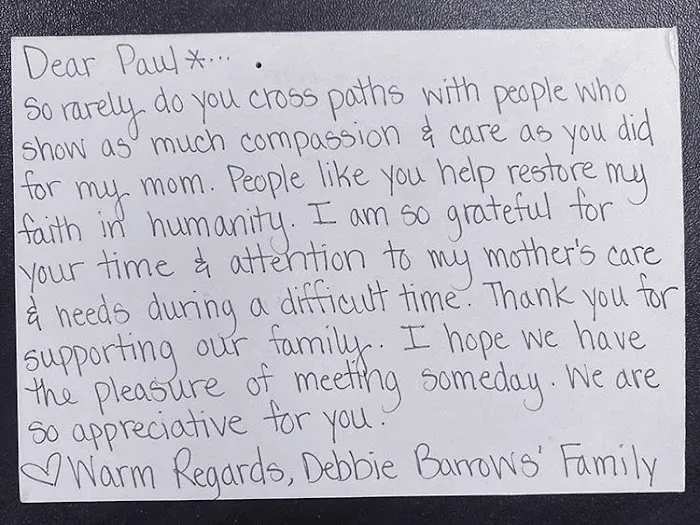 Dear Paul *...
So rarely do you cross paths with people who
show as much compassion & care as you did
for my mom. People like you help restore my
faith in humanity. I am so grateful for
your time & attention to my mother's care
& needs during a difficult time. Thank you for
supporting our family. I hope we have
the pleasure of meeting someday. We are
so appreciative for you.
♡ Warm Regards, Debbie Barrows' Family